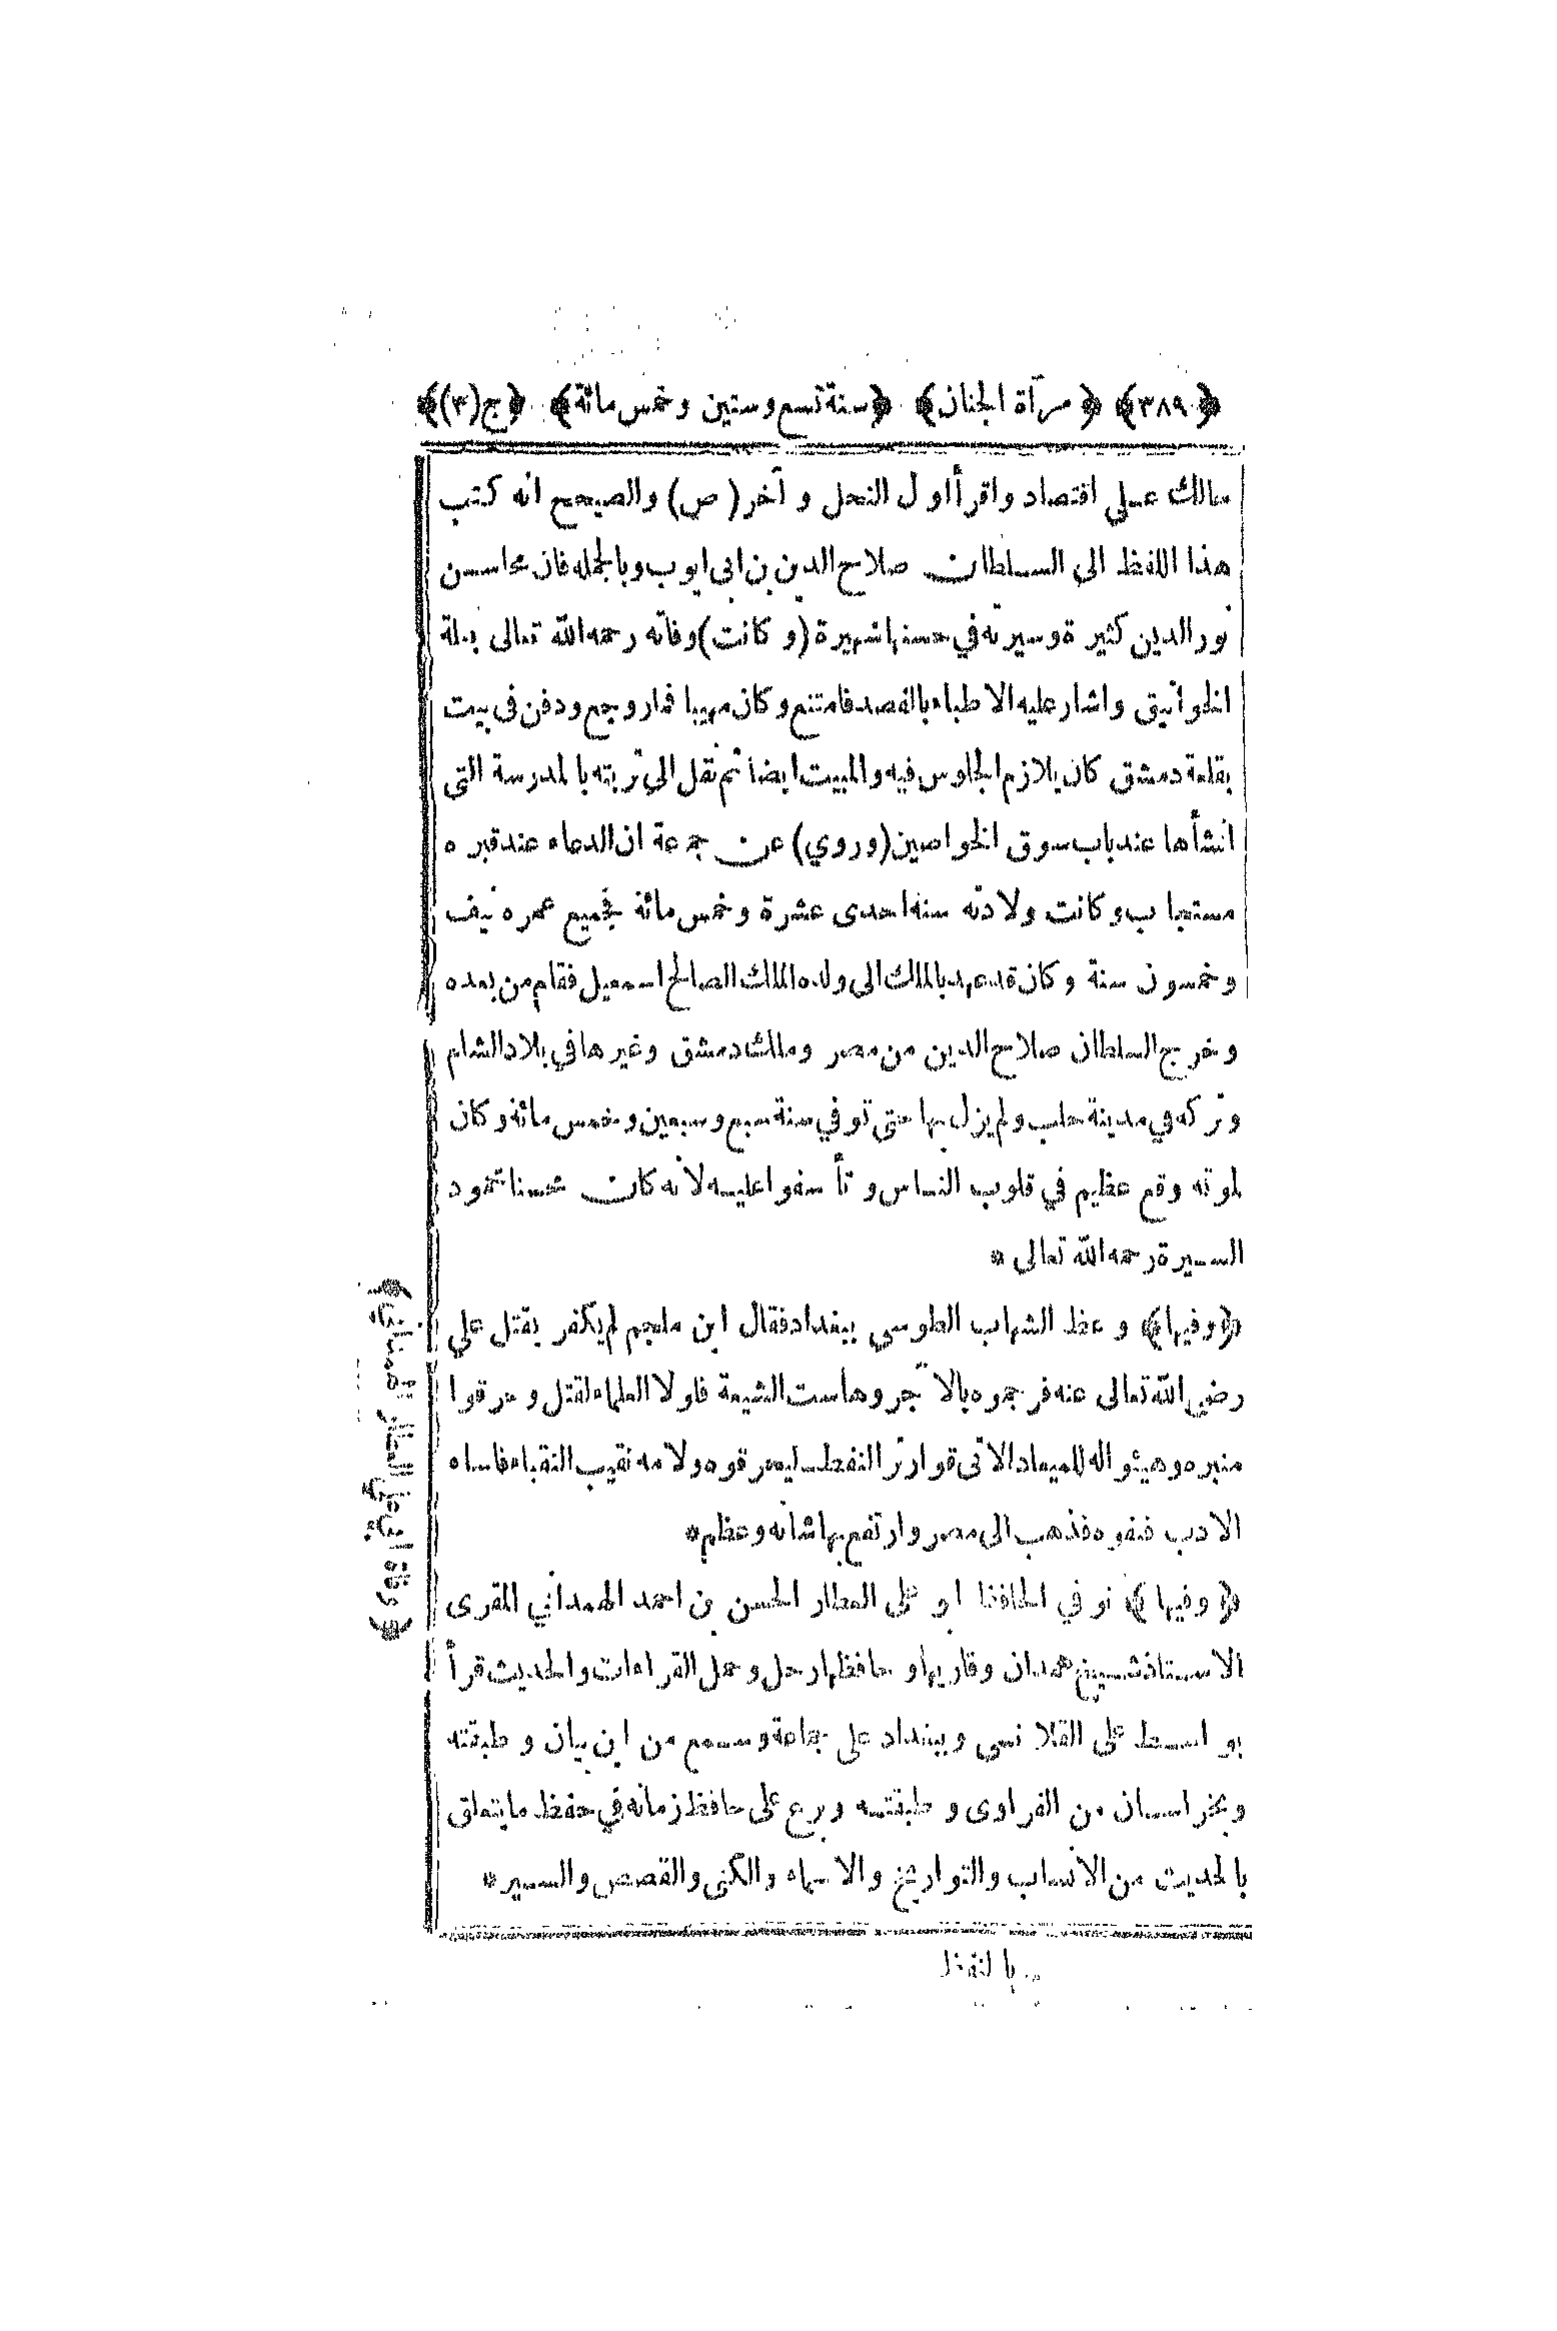 ﴿٣٨٩﴾ ﴿مرآة الجنان﴾ ﴿سنة تسع وستين وخمس مائة﴾ ﴿ج(٣)﴾
مالك على اقتصاد واقرأ اول النحل و آخر (ص) والصحيح انه كتب
هذا اللفظ الى السلطان صلاح الدين بن ابى ايوب وبالجمله فان محاسن
نور الدين كثيرة وسيرته في حسنها شهيرة (وكانت) وفاته رحمه الله تعالى بعلة
الخوانيق واشار عليه الاطباء بالفصد فامتنع وكان مهيبا فما روجع ودفن فى بيت
بقلعة دمشق كان يلازم الجلوس فيه والمبيت ايضا ثم نقل الى تربته بالمدرسة التى
انشأها عند باب سوق الخواصين (وروي) عن جمعة ان الدعاء عند قبره
مستجاب وكانت ولادته سنه احدى عشرة وخمس مائة فجميع عمره نيف
وخمسون سنة وكان قد عهد بالملك الى ولده الملك الصالح اسمعيل فقام من بعده
وخرج السلطان صلاح الدين من مصر وملك دمشق وغيرها في بلاد الشام
وتركه في مدينة حلب ولم يزل بها حتى توفي سنة سبع وسبعين وخمس مائة وكان
لموته وقع عظيم في قلوب الناس و تأسفوا عليه لانه كان محسنا محمود
السيرة رحمه الله تعالى *
﴿وفيها﴾ وعظ الشهاب الطوسى ببغداد فقال ابن ملجم لم يكفر بقتل على
رضى الله تعالى عنه فرجموه بالآجر وهاست الشيعة فلولا الغلماء لقتل وحرقوا
منبره وهيئوا له للميعاد الآتى قوارير النفط ليحرقوه ولامه نقيب النقباء فاساء
الادب فنفوه فذهب الى مصر وارتفع بها شانه وعظم*
﴿وفيها﴾ توفي الحافظ ابو على العطار الحسن بن احمد الهمداني المقرى
الاستاذ شيخ همدان وقاريها و حافظها رحل وحمل القراءات والحديث قرأ
بواسط على القلانسى وببغداد على جماعة وسمع من ابن بيان وطبقته
وبخراسان من الفراوى وطبقته وبرع على حافظ زمانه في حفظ ما يتعلق
بالحديث من الانساب والتواريخ والاسماء والكنى والقصص والسير*
﴿وفاة ابى على العطار الهمداني﴾